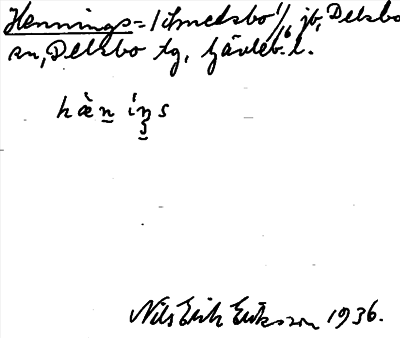 Hennings = 1 Smedsbo 1/16 jb, Delsbo
sn, Delsbo tg, Gävleb. l.
hæ̀n íŋs
Nils Erik Eriksson 1936.